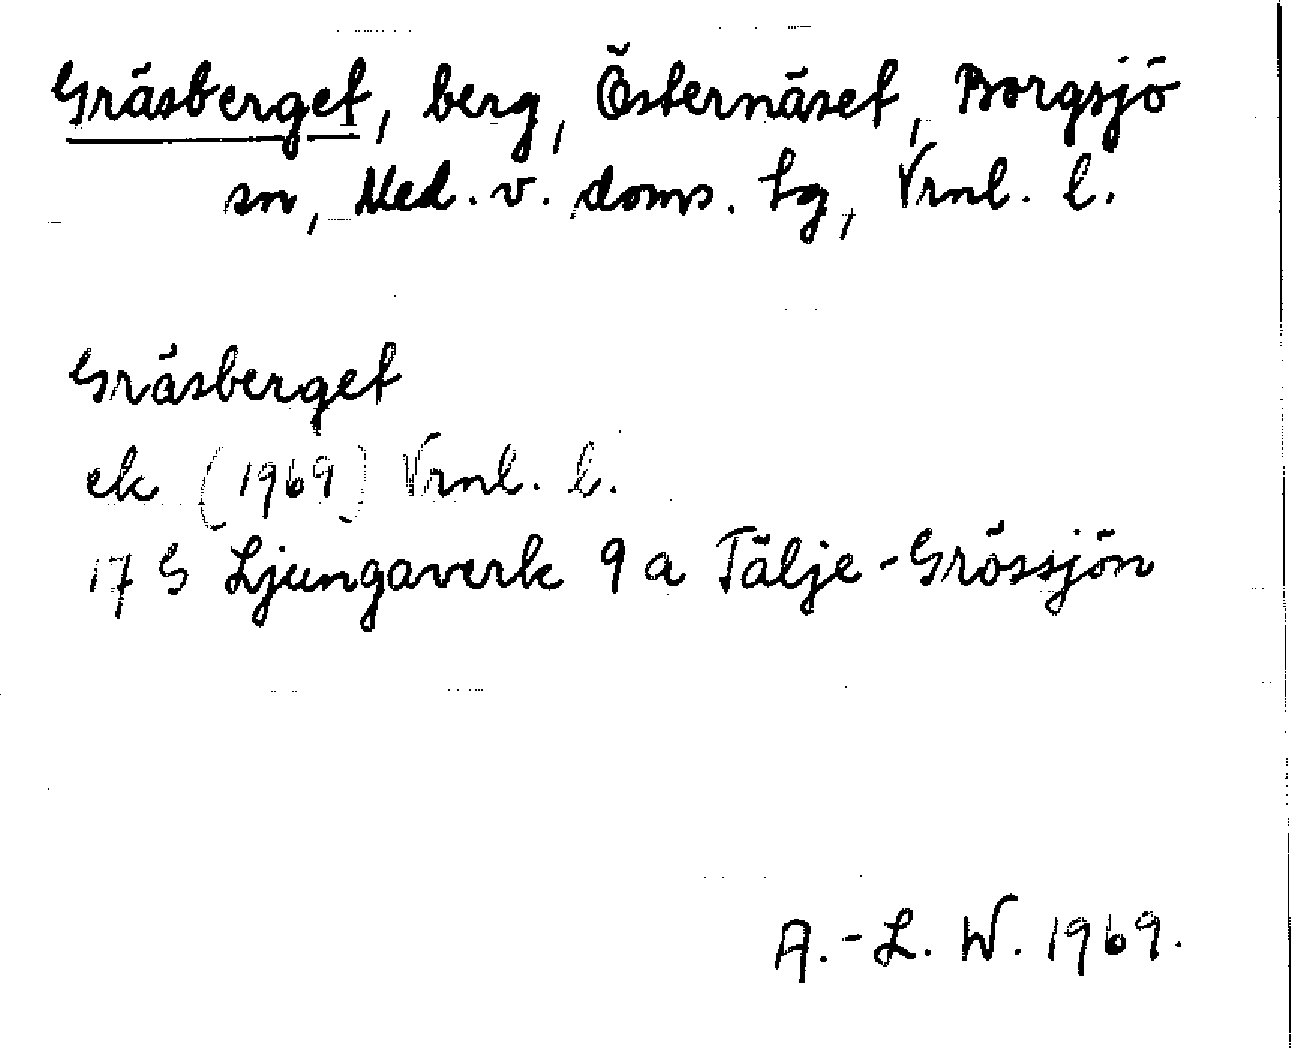 Gräsberget, berg, Östernäset, Borgsjö
sn, Med. v. doms. tg, Vrnl. l.
Gräsberget
ek (1969) Vrnl. l.
17 G Ljungaverk 9 a Tälje-Grössjön
A.-L. W. 1969.